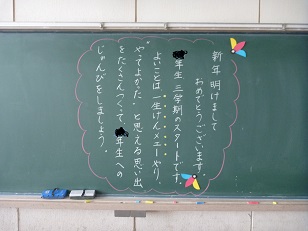 新年 明けまして
おめでとうございます。
年生 三学期のスタートです。
よいことは一生けんメニーやり、
"やてよかった"と思える思い出
をたくさんつくって、年生への
じゅんびをしましょう。